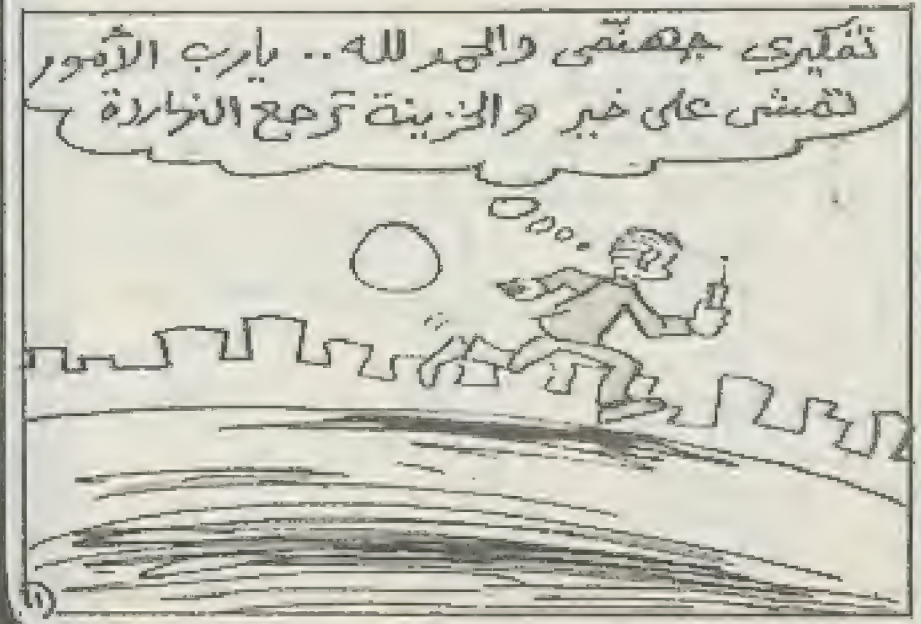 تفكيرى جهنمى والحمد لله.. يارب الأمور
تمشى على خير والخزينة ترجع النهاردة